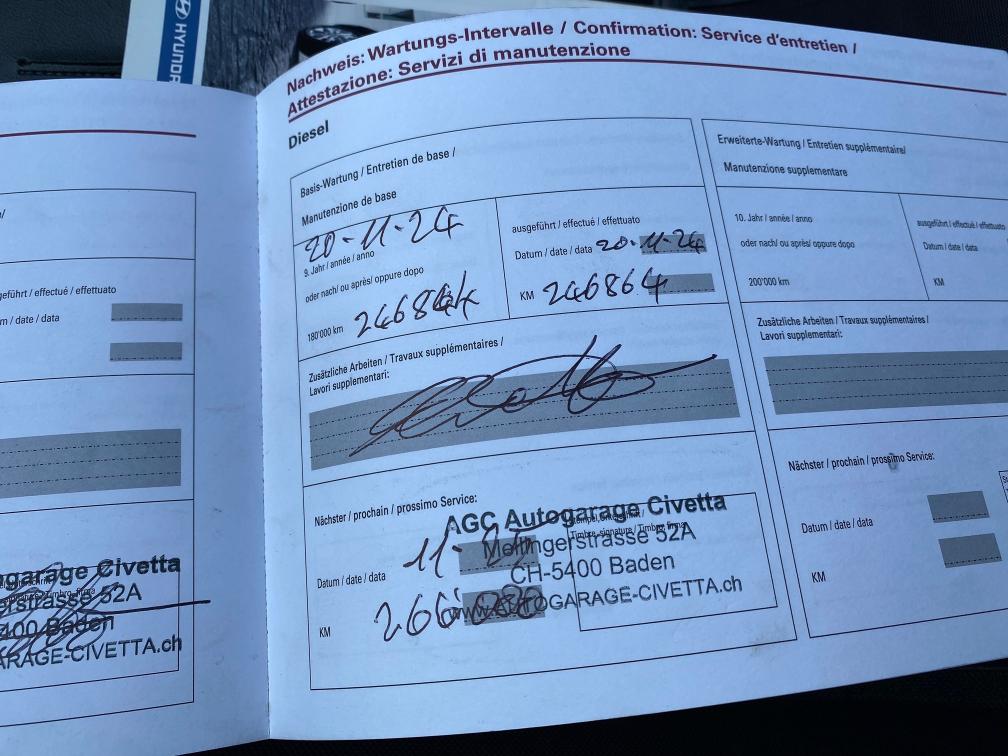 HYUNDAI
Nachweis: Wartungs-Intervalle / Confirmation: Service d'entretien /
Attestazione: Servizi di manutenzione
/
geführt / effectué / effettuato
m / date / data
ngarage Civetta
erstrasse 52A
400 Baden
ARAGE-CIVETTA.ch
Diesel
Basis-Wartung / Entretien de base /
Manutenzione de base
20-11-24
9. Jahr / année / anno
oder nach/ ou après/ oppure dopo
180'000 km 246864
ausgeführt / effectué / effettuato
Datum / date / data 20-11-24
KM 246864
Zusätzliche Arbeiten / Travaux supplémentaires /
Lavori supplementari:
Nächster / prochain / prossimo Service:
AGC Autogarage Civetta
Stempel, Unterschrift /
Timbre, signature / Timbro, firma
Mellingerstrasse 52A
CH-5400 Baden
www.AUTOGARAGE-CIVETTA.ch
Datum / date / data 11-
KM 266'000
Erweiterte-Wartung / Entretien supplémentaire/
Manutenzione supplementare
10. Jahr / année / anno
oder nach/ ou après/ oppure dopo
200'000 km
ausgeführt / effectué / effettuato
Datum / date / data
KM
Zusätzliche Arbeiten / Travaux supplémentaires /
Lavori supplementari:
Nächster / prochain / prossimo Service:
Datum / date / data
KM